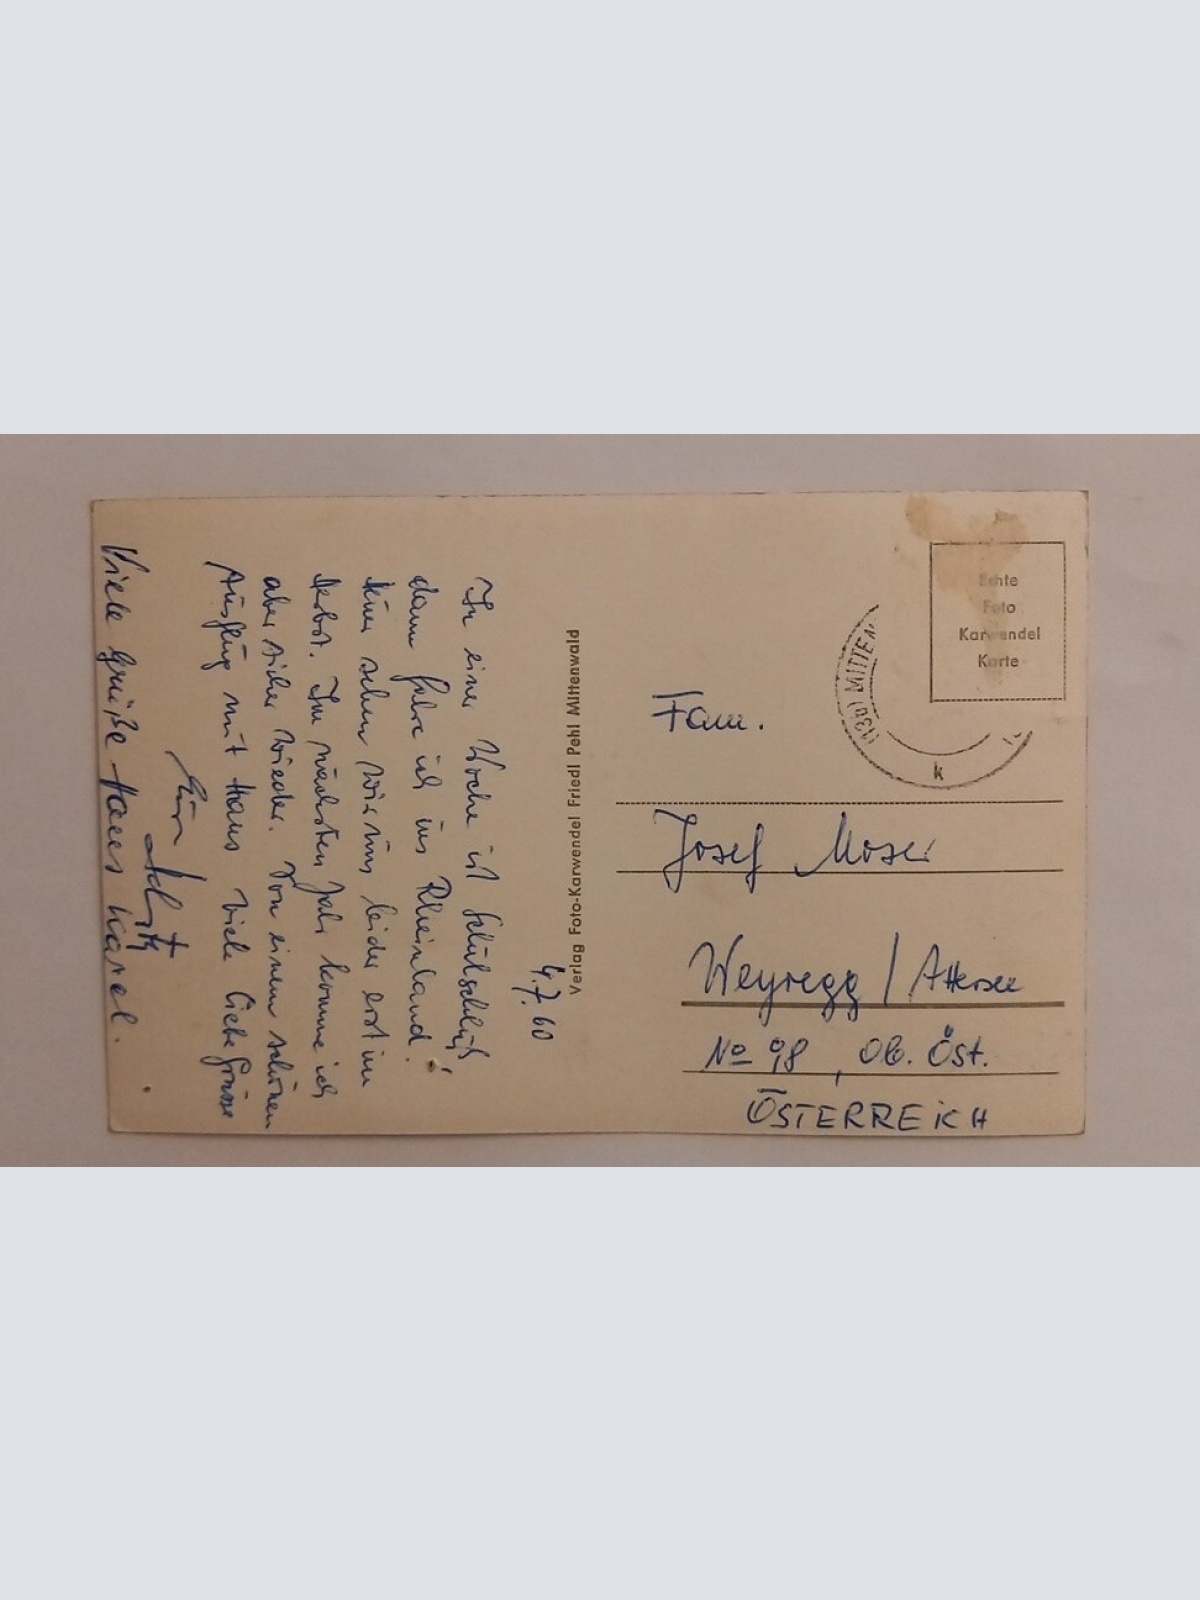 4.7.60
In einer Woche ist Schulschluß,
dann fahre ich ins Rheinland!
sehen wir uns leider erst im
Herbst. Im nächsten Jahr komme ich
aber sicher wieder. Von einem schönen
Ausflug mit Hans viele liebe Grüsse
Viele Grüße Hans
Verlag Foto-Karwendel Friedl Pehl Mittenwald
Echte
Foto
Karwendel
Karte
(13b) MITTEN
k
Fam.
Josef Moser
Weyregg / Attersee
No 98, Ob. Öst.
ÖSTERREICH